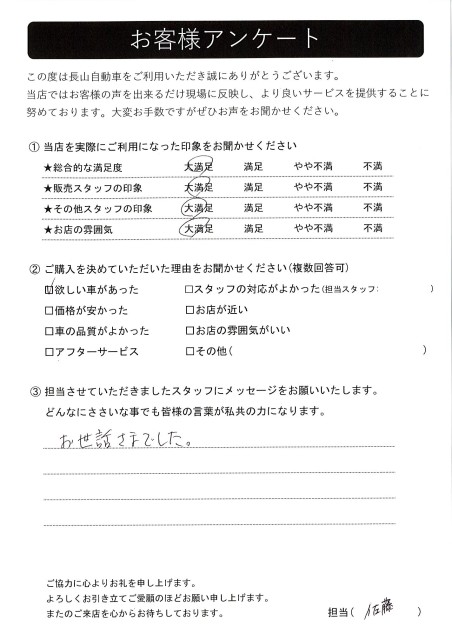 お客様アンケート
この度は長山自動車をご利用いただき誠にありがとうございます。
当店ではお客様の声を出来るだけ現場に反映し、より良いサービスを提供することに
努めております。大変お手数ですがぜひお声をお聞かせください。
① 当店を実際にご利用になった印象をお聞かせください
★総合的な満足度 大満足 満足 やや不満 不満
★販売スタッフの印象 大満足 満足 やや不満 不満
★その他スタッフの印象 大満足 満足 やや不満 不満
★お店の雰囲気 大満足 満足 やや不満 不満
② ご購入を決めていただいた理由をお聞かせください(複数回答可)
☑欲しい車があった □スタッフの対応がよかった(担当スタッフ: )
□価格が安かった □お店が近い
□車の品質がよかった □お店の雰囲気がいい
□アフターサービス □その他( )
③ 担当させていただきましたスタッフにメッセージをお願いいたします。
どんなにささいな事でも皆様の言葉が私共の力になります。
お世話さまでした。
ご協力に心よりお礼を申し上げます。
よろしくお引き立てご愛顧のほどお願い申し上げます。
またのご来店を心からお待ちしております。 担当( 佐藤 )